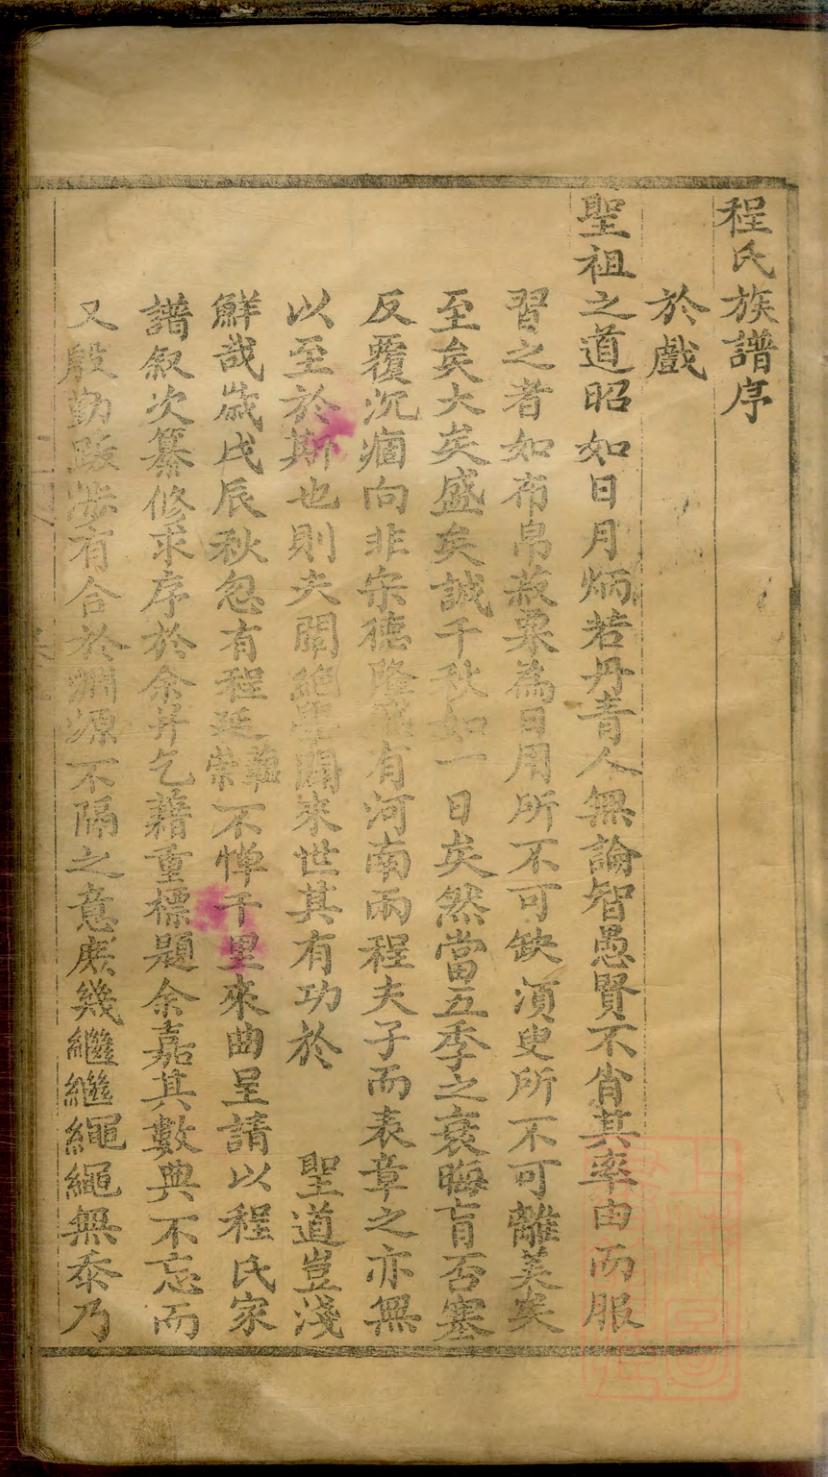 程氏族譜序
於戲
聖祖之道昭如日月炳若丹青人無論智愚賢不肖其率由而服
習之者如布帛菽粟為日用所不可缺湏臾所不可離美矣
至矣大矣盛矣誠千秋如一日矣然當五季之衰晦盲否塞
反覆沉痼向非宗德隆盛有河南兩程夫子而表章之亦無
以至於斯也則夫開絕學闢來世其有功於 聖道豈淺
鮮哉歲戊辰秋忽有程延榮華不憚千里來曲呈請以程氏家
譜叙次纂修求序於余并乞藉重標題余嘉其數典不忘而
又殷勤跋涉有合於淵源不隔之意庶幾繼繼繩繩無忝乃